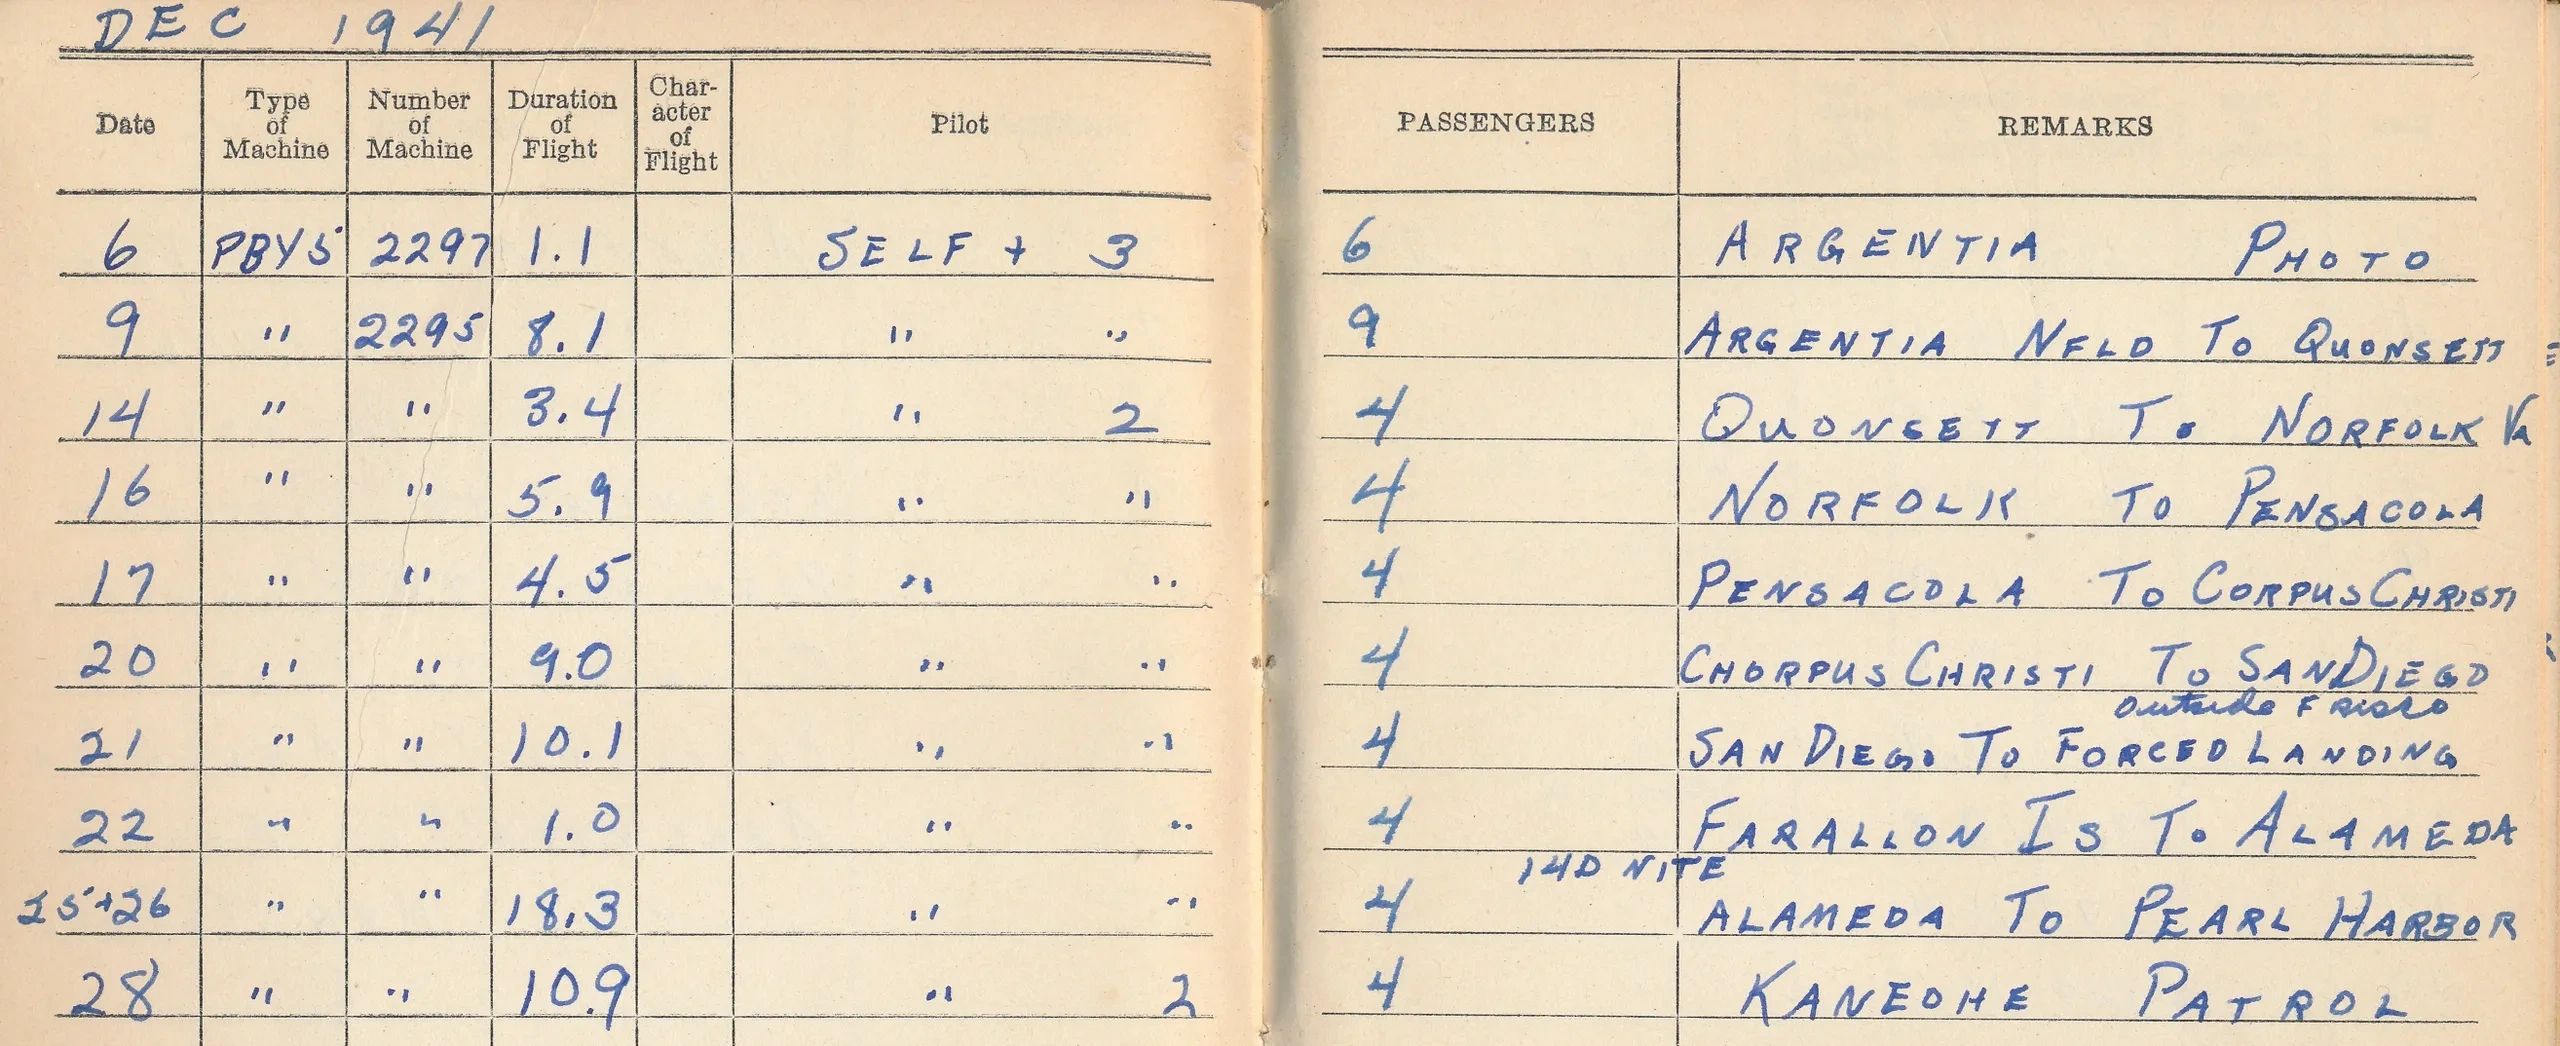 DEC 1941
Date Type of Machine Number of Machine Duration of Flight Char-acter of Flight Pilot PASSENGERS REMARKS
6 PBY5 2297 1.1 SELF + 3 6 ARGENTIA PHOTO
9 " 2295 8.1 " " 9 ARGENTIA NFLD TO QUONSETT
14 " " 3.4 " 2 4 QUONSETT TO NORFOLK Va
16 " " 5.9 " " 4 NORFOLK TO PENSACOLA
17 " " 4.5 " " 4 PENSACOLA TO CORPUS CHRISTI
20 " " 9.0 " " 4 CHORPUS CHRISTI TO SAN DIEGO
outside Frisco
21 " " 10.1 " " 4 SAN DIEGO TO FORCED LANDING
22 " " 1.0 " " 4 FARALLON IS TO ALAMEDA
14D NITE
25+26 " " 18.3 " " 4 ALAMEDA TO PEARL HARBOR
28 " " 10.9 " 2 4 KANEOHE PATROL